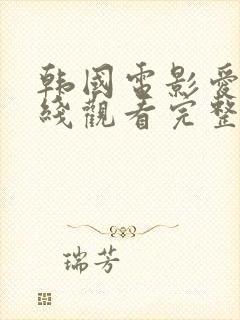 韩國電影愛
綫觀看完整
瑞芳